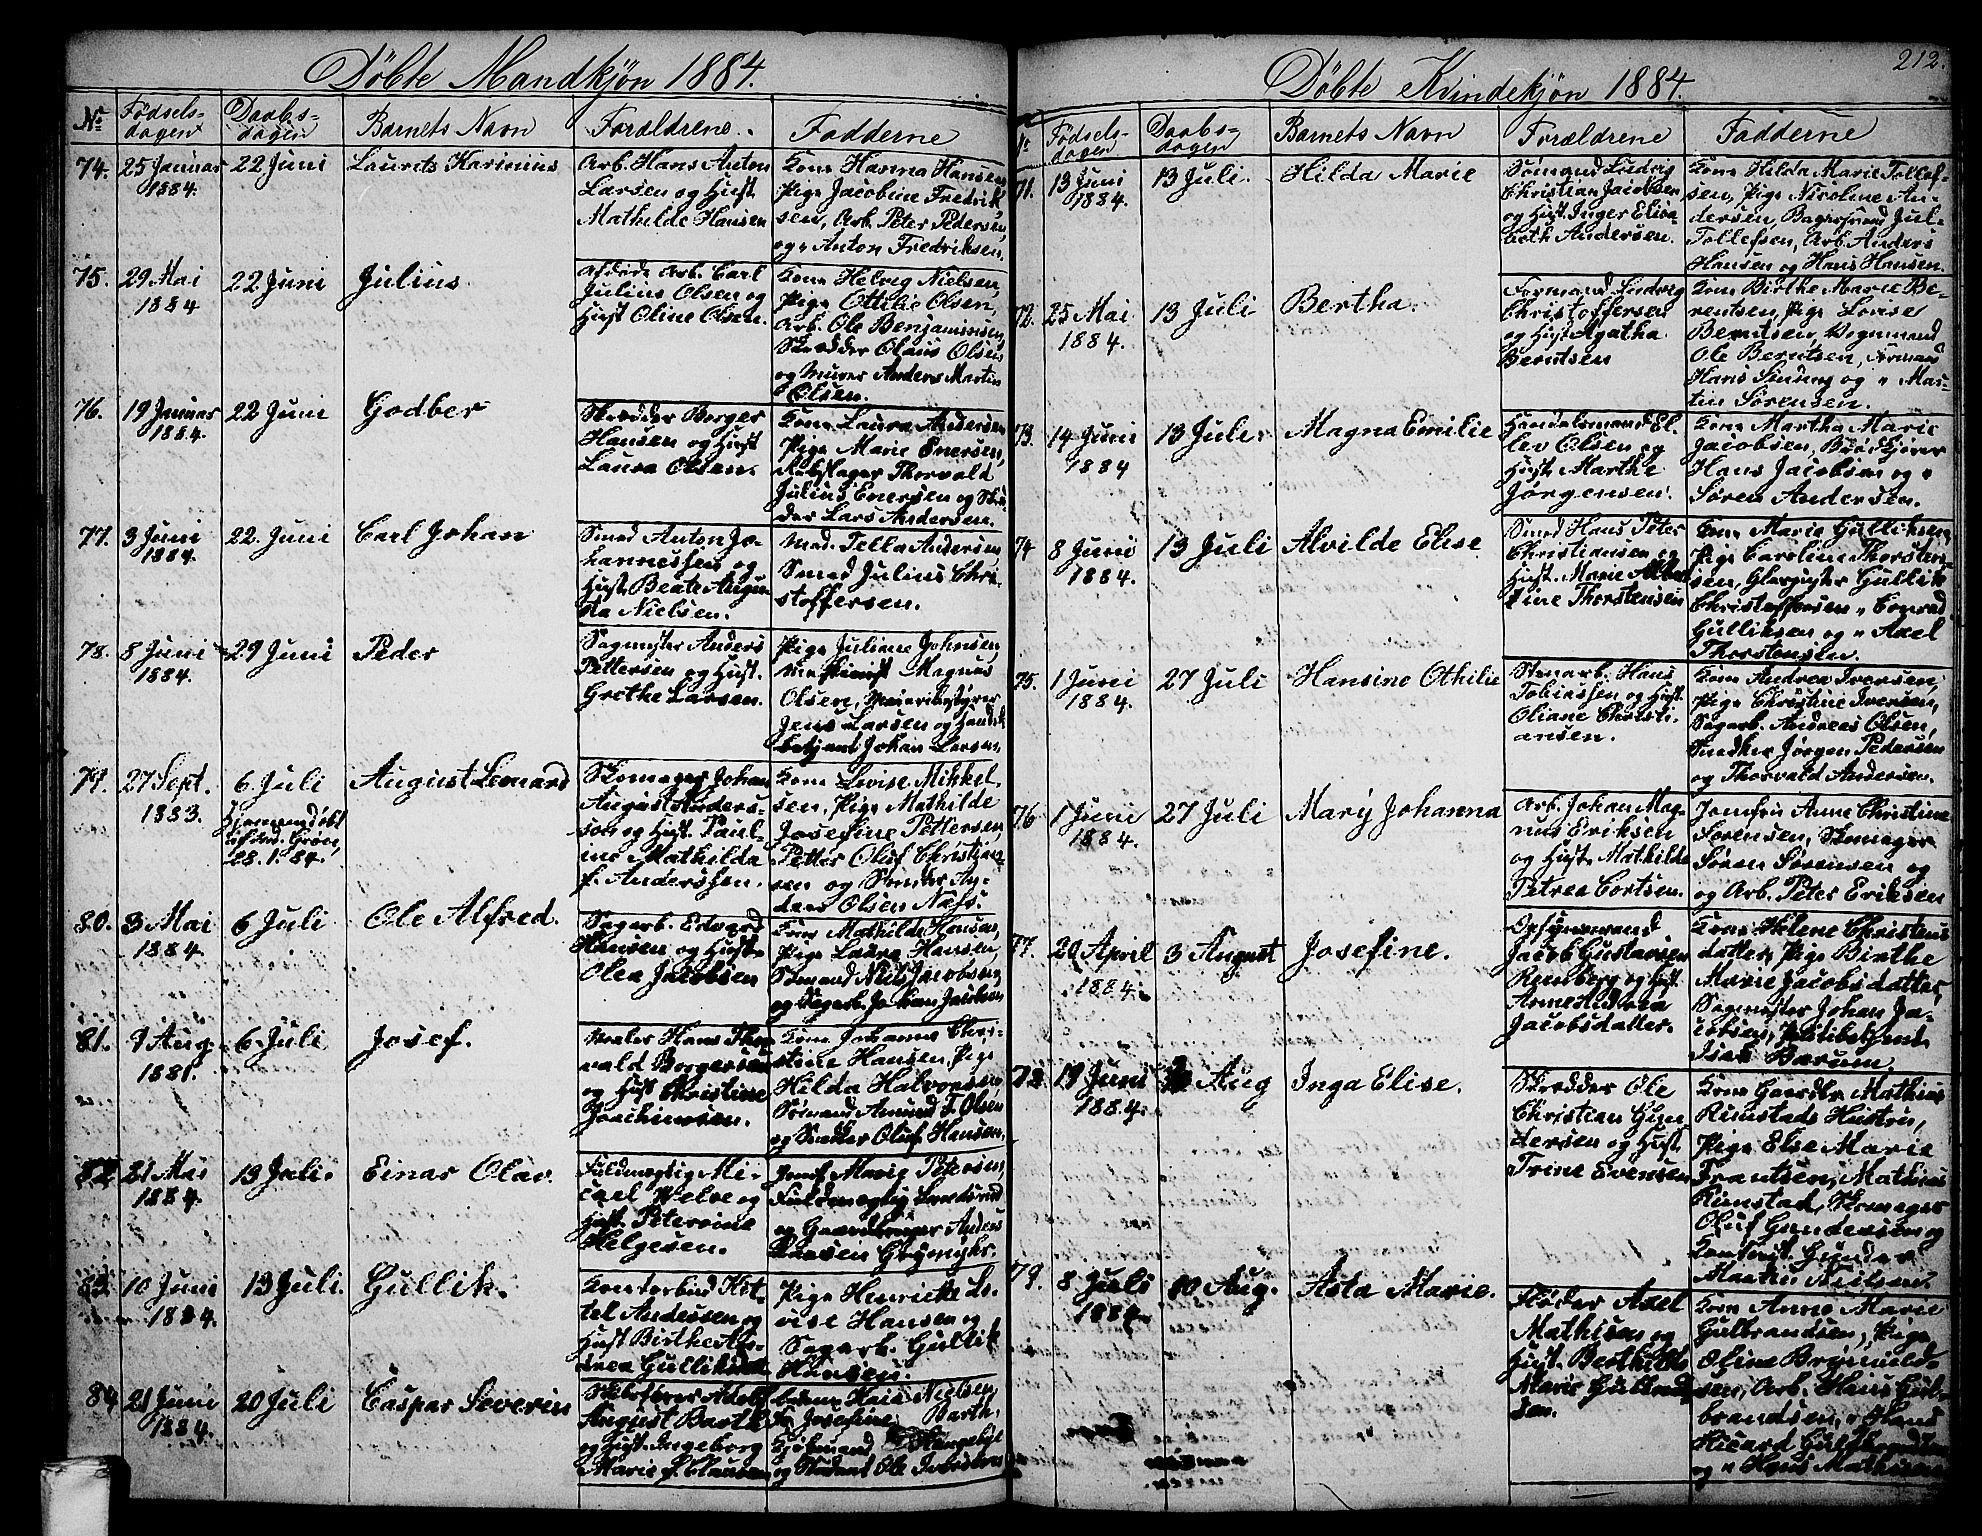 Döbte Mandkjön 1884.
No
Födsels-
dagen
Daabs-
dagen
Barnets Navn
Forældrene.
Fadderne
74.
25 Januar
1884.
22 Juni
Laurets Karinius
Arb. Hans Anton
Larsen og Hust
Mathilde Hansen
Kone Hanna Hansen
Pige Jacobine Fredrik
sen, Arb. Peter Pedersen,
og " Anton Fredriksen.
75.
29 Mai
1884
22 Juni
Julius.
Afdöde Arb. Carl
Julius Olsen og
Hust Oline Olsen.
Kone Helvig Nielsen,
Pige Ottilie Olsen,
Arb. Ole Benjaminsen,
Skrædder Olaus Olsen
og Murer Anders Martin
Olsen.
76.
19 Januar
1884.
22 Juni
Godber
Skrædder Borger
Hansen og Hust
Laura Olsen.
Kone Laura Andersen
Pige Marie Enersen,
Rebslager Thorvald
Julius Enersen og Skræ
der Lars Andersen.
77.
3 Juni
1884.
22. Juni
Carl Johan
Smed Anton Jo-
hannessen og
Hust. Beate Augus
ta Nielsen.
Mad. Tella Andersen
Smed Julius Chri-
stoffersen.
78.
8 Juni
1884.
29 Juni
Peder
Sagmester Anders
Pettersen og Hust.
Grethe Larsen.
Pige Juliane Johnsen,
Maskinist Magnus
Olsen, Meieribestyrer
Jens Larsen og Handels
betjent Johan Larsen
79.
27 Sept.
1883.
6 Juli
Hjemmedöbt
af Grön,
28.1.84.
August Leonard
Skomager Johan
August Anders-
son og Hust. Paul-
ine Mathilda
f. Anderssen.
Kone Lovise Mikkel-
sen, Pige Mathilde
Josefine Pettersen
Petter Oluf Christian-
sen og Snedker An-
ders Olsen Næss.
80.
3 Mai
1884.
6 Juli
Ole Alfred.
Sagarb. Edvard
Hansen og Hust.
Olea Jacobsen
Frue Mathilde Hansen,
Pige Laura Hansen,
Sömand Nils Jacobsen,
og Sagarb. Johan Jacobsen
81.
9 Aug.
1881.
6 Juli
Josef.
Maler Hans Thor
vald Borgersen
og Hust Christine
Joachimsen.
Kone Johanne Chri-
stine Hansen, Pige
Hilda Halvorsen
Sömand Amund F. Olsen
og Snedker Oluf Hansen.
82
21 Mai
1884.
13 Juli.
Einar Olav.
Fuldmægtig Mi-
cael Welve og
Hust. Petersine
Helgesen.
Jomf Marie Petersen
Fuldmægtig
og Gaardbruger Anders
83.
10 Juni
1884.
13 Juli.
Gullik.
Kontorbud Ket-
tel Andersen og
Hust Birthe An-
drea Gulliksen
Pige Henrikke Lo-
vise Hansen og
Sagarb. Gullik
Hansen.
84
21 Juni
1884.
20 Juli
Caspar Severin
Skibsförer Adolf
August Barth
og Hust. Ingeborg
Marie f. Clausen
Nielsen,
Fr. Josefine Barth,
Kjöbmand
og Student Ole Iversen
212.
Döbte Kvindekjön 1884.
No
Födsels-
dagen
Daabs-
dagen
Barnets Navn
Forældrene
Fadderne
71.
13 Juni
1884.
13 Juli.
Hilda Marie
Sömand Ludvig
Christian Jacobsen
og Hust. Inger Elisa-
beth Andersen.
Kone Hilda Marie Tollef-
sen, Pige Nicoline An-
dersen, Bagersvend Jul-
Tollefsen, Arb. Anders
Hansen og Hans Hansen.
72.
25 Mai
1884.
13 Juli
Bertha.
Formand Ludvig
Christoffersen
og Hust Agatha
Berntsen
Kone Birthe Marie Be-
rentsen, Pige Lovise
Berntsen, Vognmand
Ole Berntsen, Formand
Hans Sending og " Mar-
tin Sörensen.
73.
14 Juni
1884
13 Juli.
Magna Emilie
Handelsmand El-
lev Olsen og
Hust. Marthe
Jörgensen.
Kone Martha Marie
Jacobsen, Brödkjörer
Hans Jacobsen og "
Sören Andersen.
74
8 Juni
1884.
13 Juli
Alvilde Elise
Smed Hans Peter
Christiansen og
Hust. Marie Alber
tine Thorstensen
Kone Marie Gulliksen,
Pige Caroline Thorsten-
sen, Glarmester Gullik
Christoffersen " Conrad
Gulliksen og " Axel
Thorstensen.
75.
1 Juni
1884.
27 Juli
Hansine Othilie
Stenarb. Hans
Tobiassen og Hust
Oliane Christi-
ansen.
Kone Andrea Iversen,
Pige Christine Iversen,
Sagarb. Andreas Olsen,
Snedker Jörgen Pedersen
og Thorvald Andersen.
76
1 Juni
1884.
27 Juli
Mary Johanna
Arb. Johan Mag-
nus Eriksen
og Hust. Mathilde
Petrea Cortsen.
Jomfru Anne Christine
Sörensen, Skomager
Sören Sörensen og
og Arb. Peter Eriksen
77.
20 April
1884.
3 August
Josefine.
Opsynsmand
Jacob Gustavsen
Remberg og Hust.
Anne Andrea
Jacobsdatter.
Kone Helene Christens
datter, Pige Birthe
Marie Jacobsdatter,
Sagmester Johan Ja-
cobsen, Politibetjent
Isak Barum.
78.
19 Juni
1884.
Aug
Inga Elise.
Skrædder Ole
Christian Gun-
dersen og Hust
Trine Evensen
Kone Gaardbr Mathias
Rimstads Hustru,
Pige Else Marie
Frantsen, Mathias
Rimstad, Skomager
Oluf Gundersen og
Kontorist Gunder
Martin Nielsen.
79.
8 Juli
1884.
10 Aug.
Asta Marie.
Flöder Axel
Mathisen og
Hust. Berthilde
Marie Gulbrand
sen.
Kone Anne Marie
Gulbrandsen, Pige
Oline Brynild-
sen, Arb. Hans Gul-
brandsen, " Hans
Ricard Gulbrandsen
og " Hans Mathisen